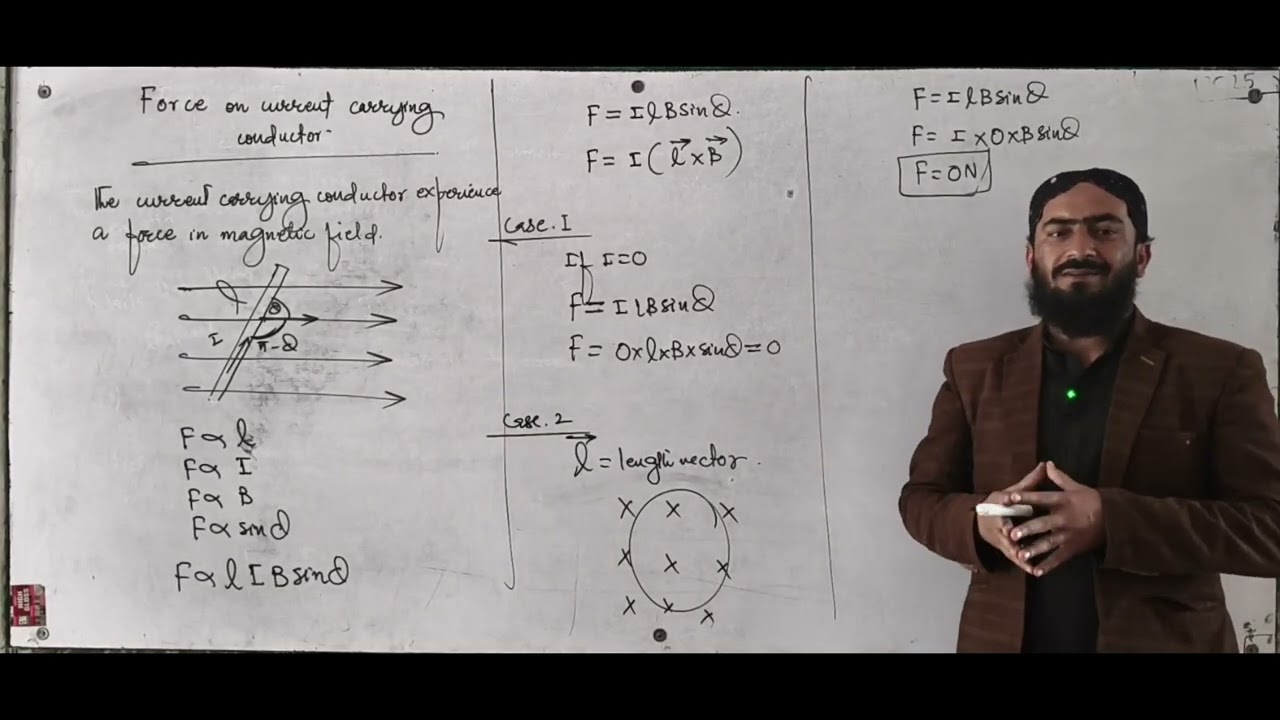 Force on current carrying
conductor.
The current carrying conductor experience
a force in magnetic field.
θ
I
π-θ
F ∝ l
F ∝ I
F ∝ B
F ∝ sinθ
F ∝ l I B sinθ
F = I l B sinθ.
F = I (l⃗ × B⃗)
Case. 1
If I = 0
F = I l B sinθ
F = 0×l×B×sinθ = 0
Case. 2
l⃗ = length vector.
X X X
X X X
X X X
F = I l B sinθ
F = I × 0 × B sinθ
F = 0N
HIGH
GLOSS